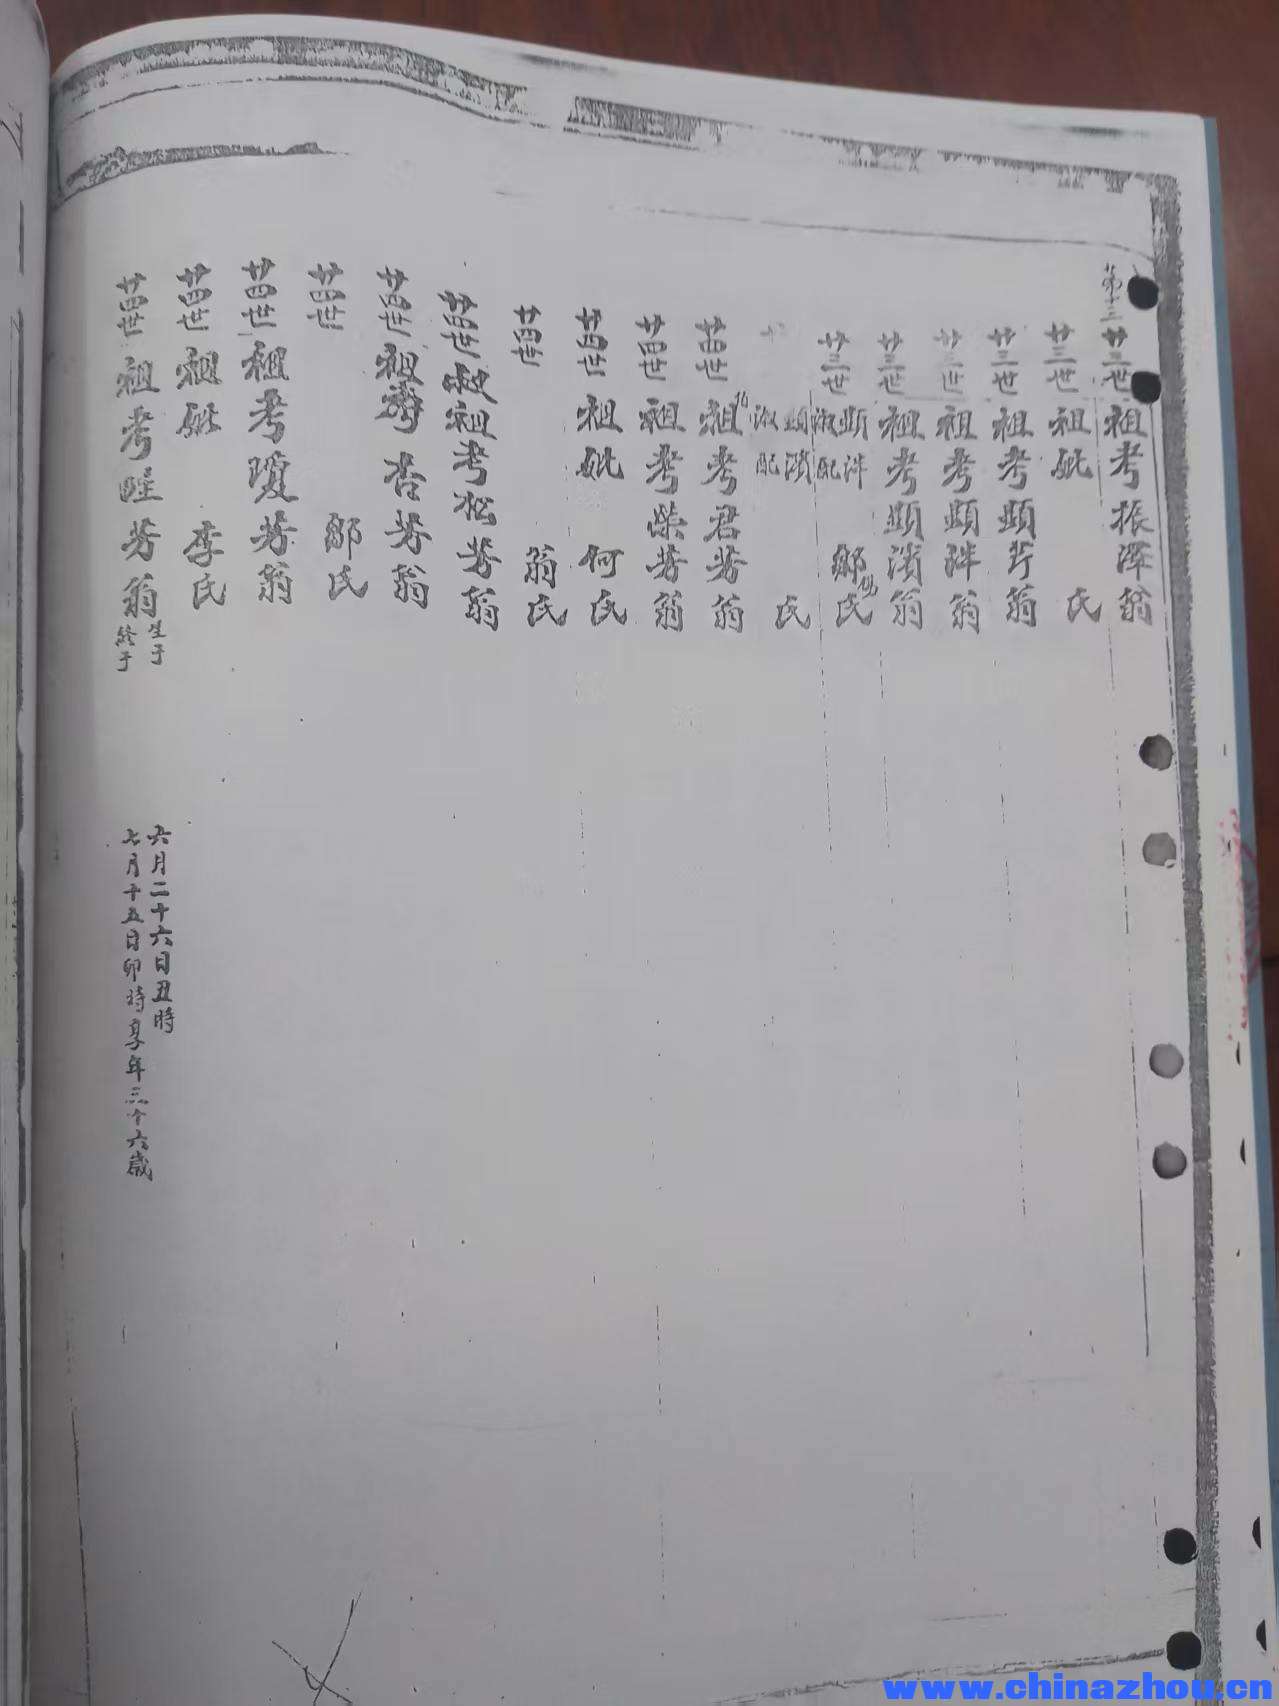 第十三
廿三世祖考振澤翁
廿三世祖妣 氏
廿三世祖考顕芹翁
廿三世祖考顕泮翁
廿三世祖考顕濱翁
廿三世顕泮淑配 鄒氏
顕濱淑配 氏
廿四世祖考君芳翁
廿四世祖考榮芳翁
廿四世祖妣 何氏
廿四世 翁氏
廿四世叔祖考松芳翁
廿四世祖考杏芳翁
廿四世 鄒氏
廿四世祖考瓊芳翁
廿四世祖妣 李氏
廿四世祖考 芳翁
生于 六月二十六日丑時
終于 七月十五日卯時享年三十六歲
www.chinazhou.cn